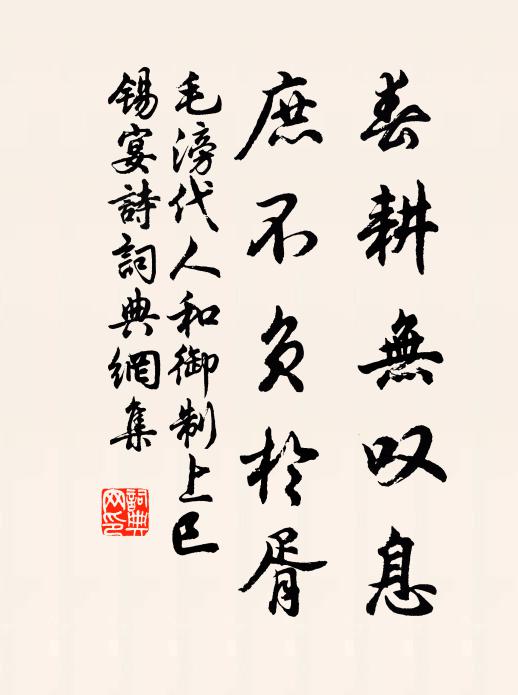 春耕無叹息
庶不负於胥
毛滂代人和御制上巳
锡宴詩詞典網集
詞典网印